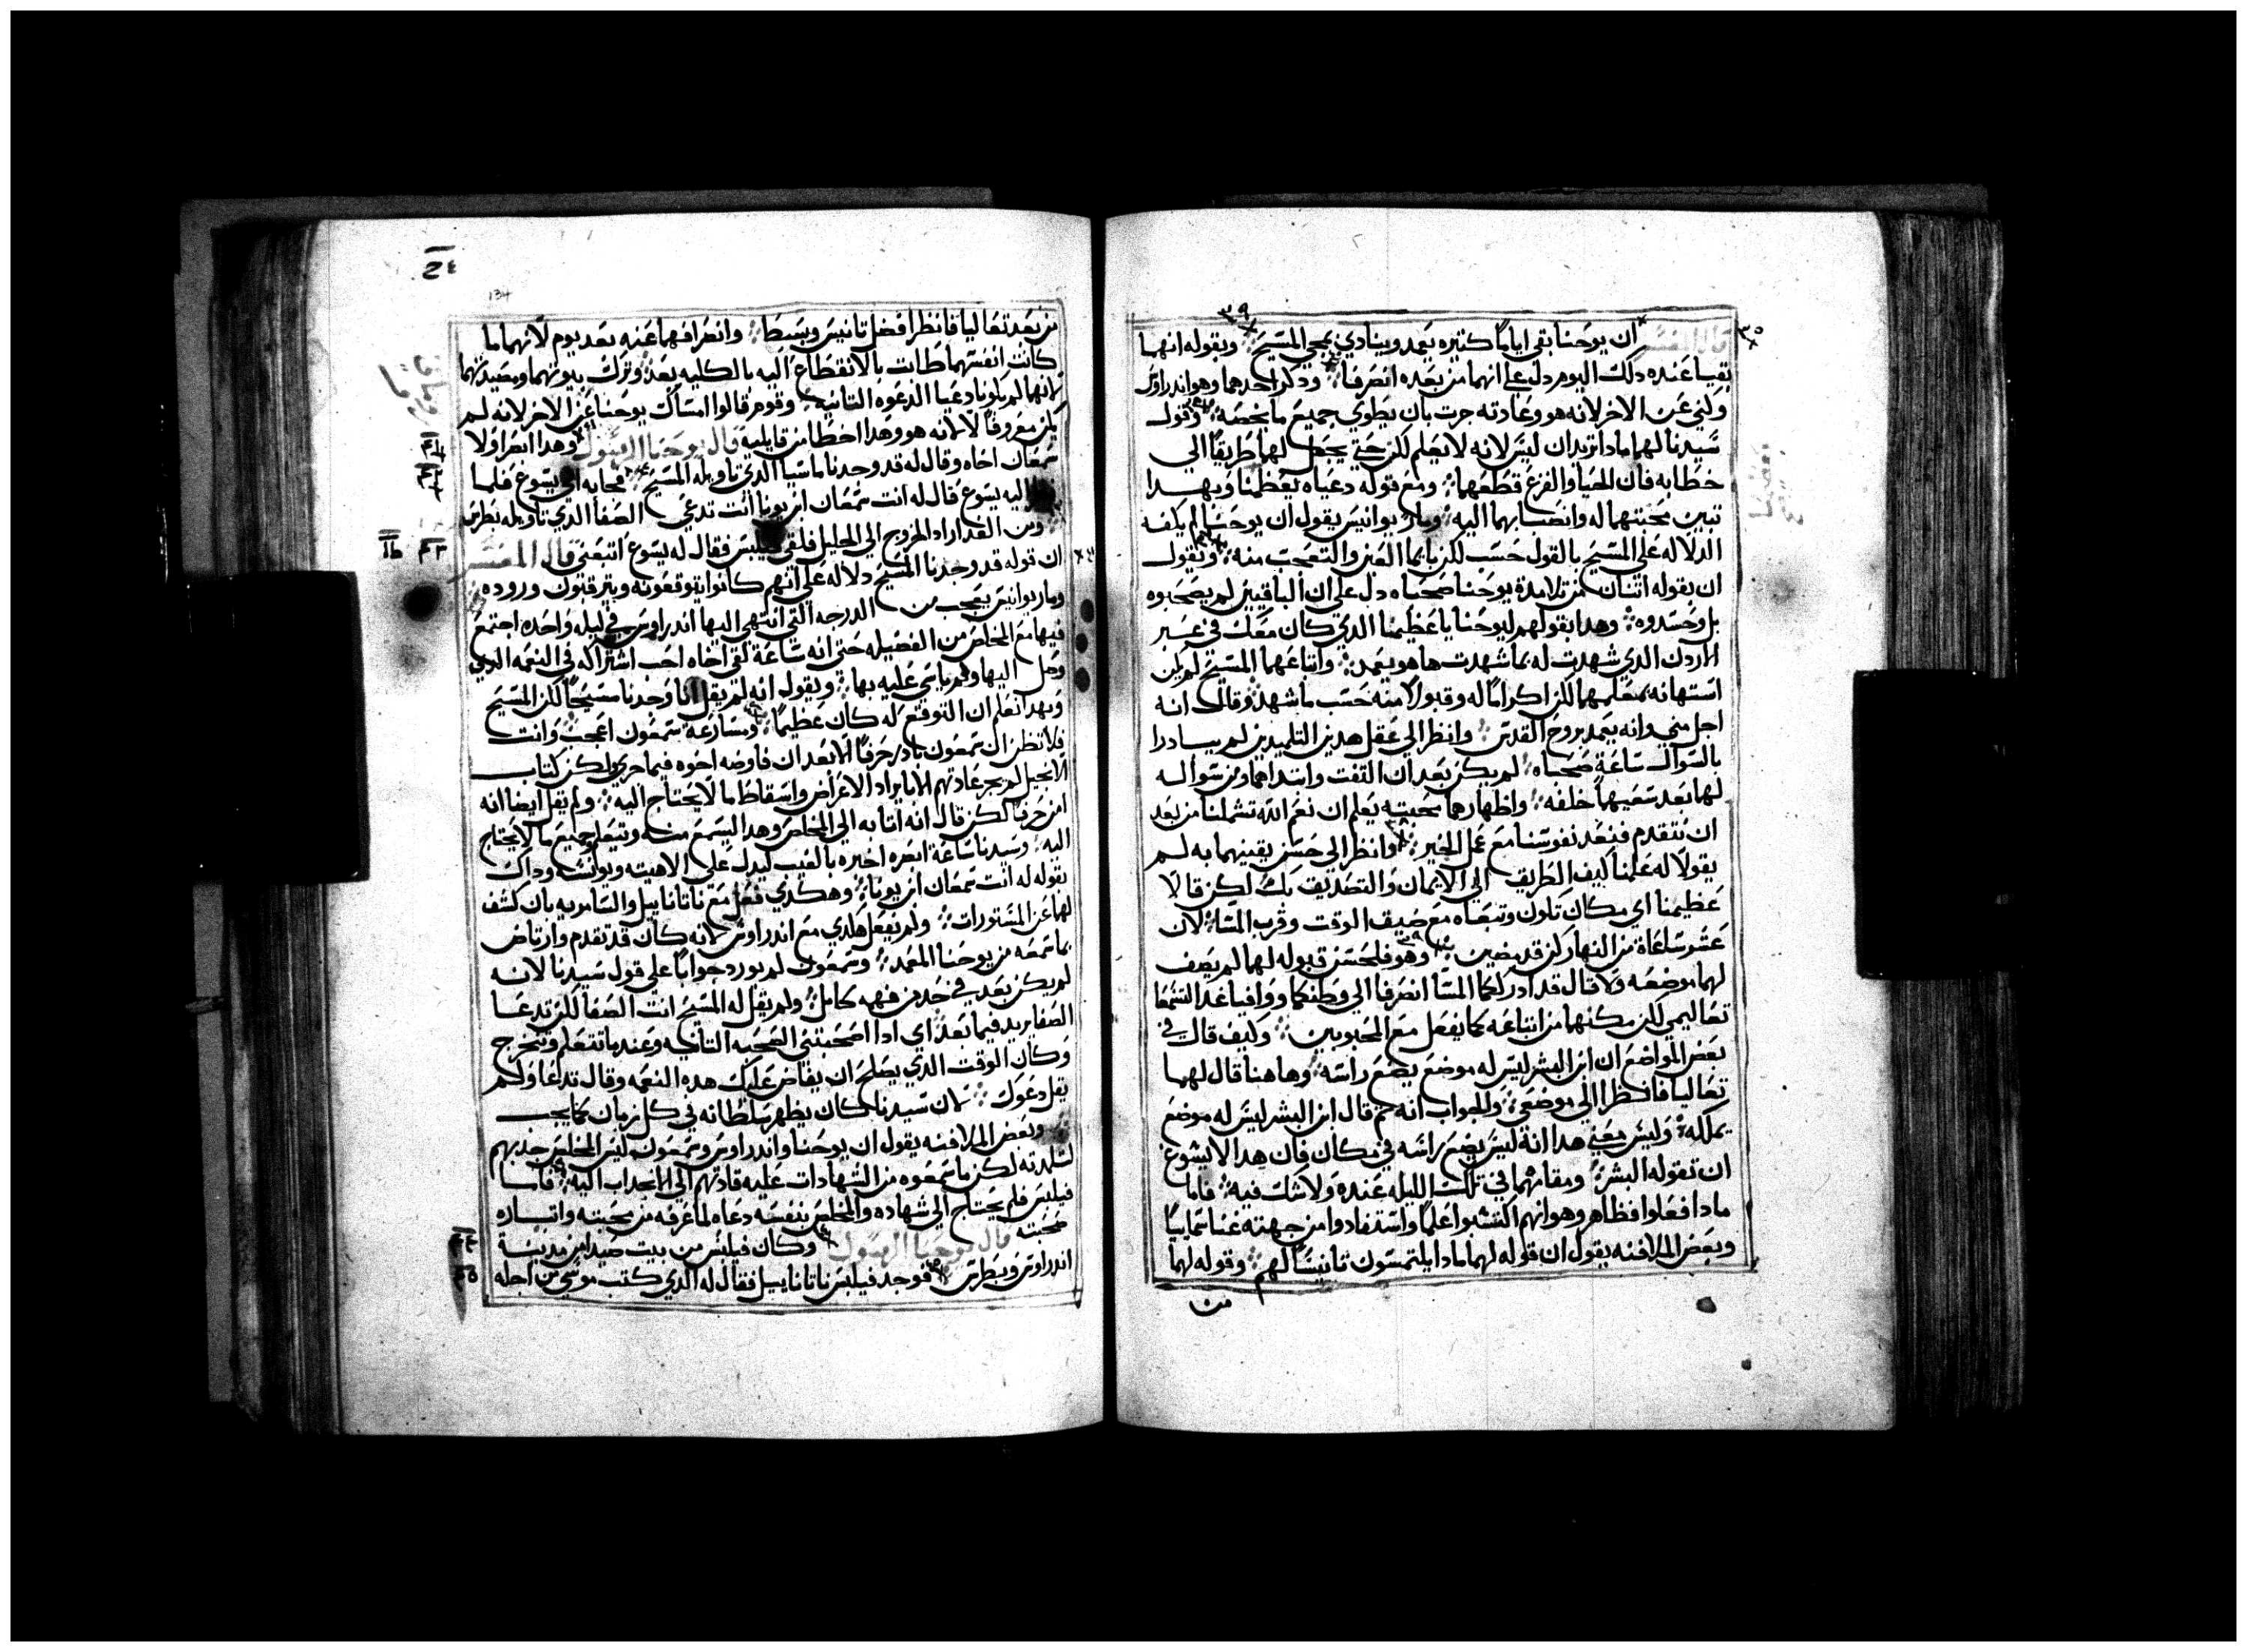 قال المفسر ان يوحنا بقي اياما كتيره يعمد وينادي بمجي المسيح وبقوله انهما
بقيا عنده دلك اليوم دل على انهما من بعده انصرفا ودكر احدهما وهو اندراوس
ولني عن الاخر لانه هو وعادته جرت بان يطوي جميع ما يخصه وقول
سيدنا لهما مادا تريدان ليس لانه لا يعلم لكن حتى يجعل لهما طريقا الى
خطابه فان الحيا والفزع قطعهما ومع قوله دعياه يعظمنا وبهدا
تبين محبتهما له وانصبابهما اليه ومار يوانيس يقول ان يوحنا لم يكفه
الدلاله على المسيح بالقول حسب لكن بايما العين والتعجب منه ويقول
ان بقوله اتنان من تلامدة يوحنا صحباه دل على ان الباقيين لم يصحبوه
بل وحسدوه وهدا بقولهم ليوحنا يا عظيمنا الدي كان معك في عبر
الاردن الدي شهدت له بما شهدت ها هو يعمد واتباعهما المسيح لم يكن
استهانه بمعلمهما لكن اكراما له وقبولا منه حسب ما شهد وقال انه
اجل مني وانه يعمد بروح القدس وانظر الى عقل هدين التلميدين لم يبادرا
بالسوال ساعة صحباه لم يكن بعد ان التفت وابتداهما ومن سواله
لهما بعد سعيهما خلفه واظهارهما محبته يعلم ان نعم الله تشملنا من بعد
ان نتقدم فنعد نفوسنا مع عمل الخير وانظر الى حسن يقينهما به لم
يقولا له علمنا كيف الطريق الى الايمان والتصديق بك لكن قالا
عظيمنا اي مكان تكون وتبعاه مع ضيق الوقت وقرب المسا لان
عشر ساعاة من النهار كن قد مضين وهو فلحسن قبوله لهما لم يصف
لهما موضعه ولا قال قد ادرككما المسا انصرفا الى وطنكما ووافيا غدا لتسمعا
تعاليمي لكن مكنهما من اتباعه كما يفعل مع المحبوبين وكيف قال في
بعض المواضع ان ابن البشر ليس له موضع يضع راسه وهاهنا قال لهما
تعاليا فانظرا الى موضعي والجواب انه تم قال ابن البشر ليس له موضع
يملكه وليس معنى هدا انه ليس يضع راسه في مكان فان هدا لا يسوغ
ان تقوله البشر ومقامهما في تلك الليله عنده ولا شك فيه فاما
مادا فعلوا فظاهر وهو انهم اكتسبوا علما واستفادوا من جهته غنا سماييا
وبعض الملافنه يقول ان قوله لهما مادا يلتمسون تانيسا لهم وقوله لهما
من
134
من بعد تعاليا فانظرا فضل تانيس وبسط وانصرافهما عنه بعد يوم لانهما ما
كانت انفسهما طابت بالانقطاع اليه بالكليه بعد وترك بيوتهما ومصيدتهما
لانهما لم يكونا دعيا الدعوه التانيه وقوم قالوا امسك يوحنا عن الاخر لانه لم
يكن معروفا لا لانه هو وهدا اخطا من قايليه قال يوحنا الرسول وهدا ابصر اولا
سمعان اخاه وقال له قد وجدنا ماسيا الدي تاويله المسيح فجا به الى يسوع فلما
اليه يسوع قال له انت سمعان ابن يونا انت تدعى الصفا الدي تاويله بطرس
ومن الغد اراد الخروج الى الجليل فلقى فيلبس فقال له يسوع اتبعني قال المفسر
ان قوله قد وجدنا المسيح دلاله على انهم كانوا يتوقعونه ويترقبون وروده
ومار يوانيس يعجب من الدرجه التي انتهى اليها اندراوس في ليله واحده اجتمع
فيها مع المخلص من الفضيله حتى انه ساعة لقى اخاه احب اشتراكه في النعمه الدي
وصل اليها ولم ياسى عليه بها وبقوله انه لم يقل انا وجدنا مسيحا لكن المسيح
وبهدا نعلم ان التوقع له كان عظيما ومسارعة سمعون اعجب وانت
فلا تظن ان سمعون بادر جزفا الا بعد ان فاوضه اخوه فيما جرى ولكن كتاب
الانجيل لم يجر عادتهم الا بايراد الاغراض واسقاط ما لا يحتاج اليه ولم يقل ايضا انه
امن جزفا لكن قال انه اتا به الى المخلص وهدا ليسمع منه ويتعلم جميع ما لا يحتاج
اليه وسيدنا ساعة ابصره اخبره بالغيب ليدل على الاهيته ويونسه وداك
بقوله له انت سمعان ابن يونا وهكدي فعل مع ناتاناييل والسامريه بان كشف
لهما عن المستورات ولم يفعل هكدي مع اندراوس لانه كان قد تقدم وارتاض
بما سمعه من يوحنا المعمد وسمعون لم يورد جوابا على قول سيدنا لانه
لم يكن بعد في حد من فهمه كامل ولم يقل له المسيح انت الصفا لكن تدعا
الصفا يريد فيما بعد اي ادا اصحبتني الصحبه التانيه وعندما تتعلم وتتخرج
وكان الوقت الدي يصلح ان يفاض عليك هده النعمه وقال تدعا ولم
يقل دعوك لان سيدنا كان يظهر سلطانه في كل زمان كما يجب
وبعض الملافنه يقول ان يوحنا واندراوس وسمعون ليس المخلص جدبهم
لتلمدته لكن ما سمعوه من الشهادات عليه قادتهم الى الانجداب اليه فاما
فيلبس فلم يحتاج الى شهاده والمخلص بنفسه دعاه لما عرفه من محبته واتياره
صحبته قال يوحنا الرسول وكان فيلبس من بيت صيدا من مدينة
اندراوس وبطرس فوجد فيلبس ناتاناييل فقال له الدي كتب موسى من اجله